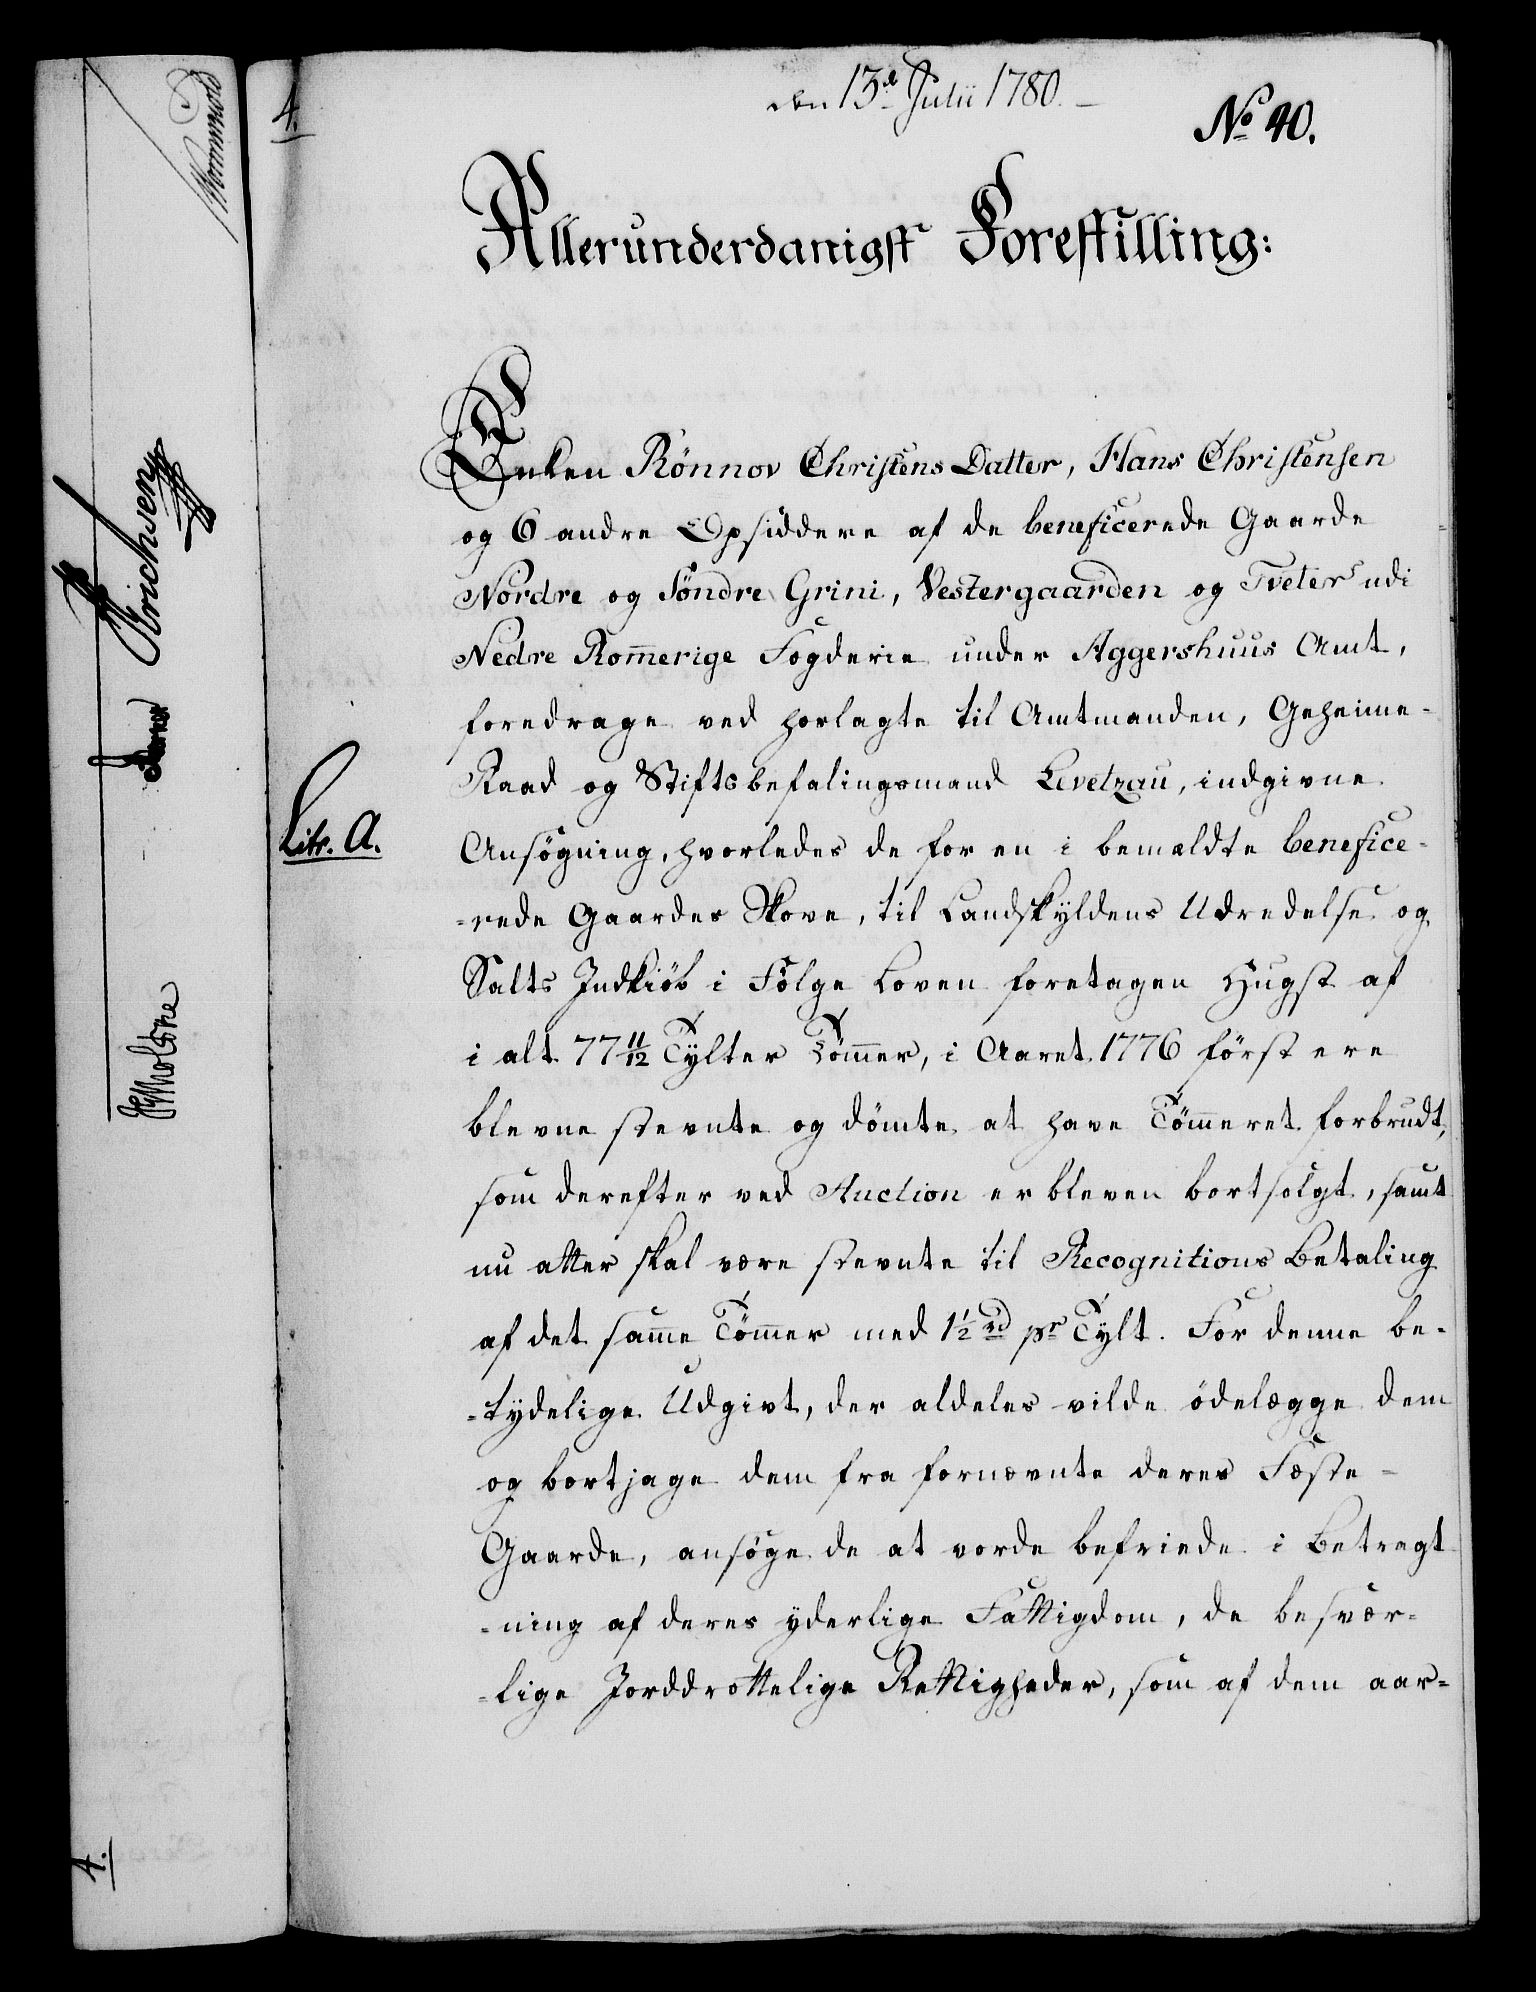 den 13d Julii 1780.
No 40.
4.
Allerunderdanigst Forestilling:
Enken Rönnov Christens Datter, Hans Christensen
og 6 andre Opsiddere af de beneficerede Gaarde
Nordre og Söndre Grini, Vestergaarden og Tveter udi
Nedre Rom̄erige Fogderie under Aggershuus Amt,
foredrage ved hoslagte til Amtmanden, Geheime-
Raad og Stiftsbefalingsmand Levetzau, indgivne
Litr. A.
Ansögning, hvorledes de for en i bemældte benefice-
-rede Gaardes Skove, til Landskyldens Udredelse og
Salts Indkiöb i Fölge Loven foretagen Hugst af
i alt 77 11/12 Tylter Töm̄er, i Aaret 1776 först ere
blevne stevnte og dömte at have Töm̄eret forbrudt,
som derefter ved Auction er bleven bortsolgt, samt
nu atter skal være stevnte til Recognitions Betaling
af det sam̄e Töm̄er med 1½ rd pr Tylt. For denne be-
-tydelige Udgivt, der aldeles vilde ödelægge dem
og bortjage dem fra fornævnte deres Fæste-
Gaarde, ansöge de at vorde befriede i Betragt
-ning af deres yderlige Fattigdom, de besvær-
-lige Jorddrottelige Rettigheder, som af dem aar-
Erichsen
4.